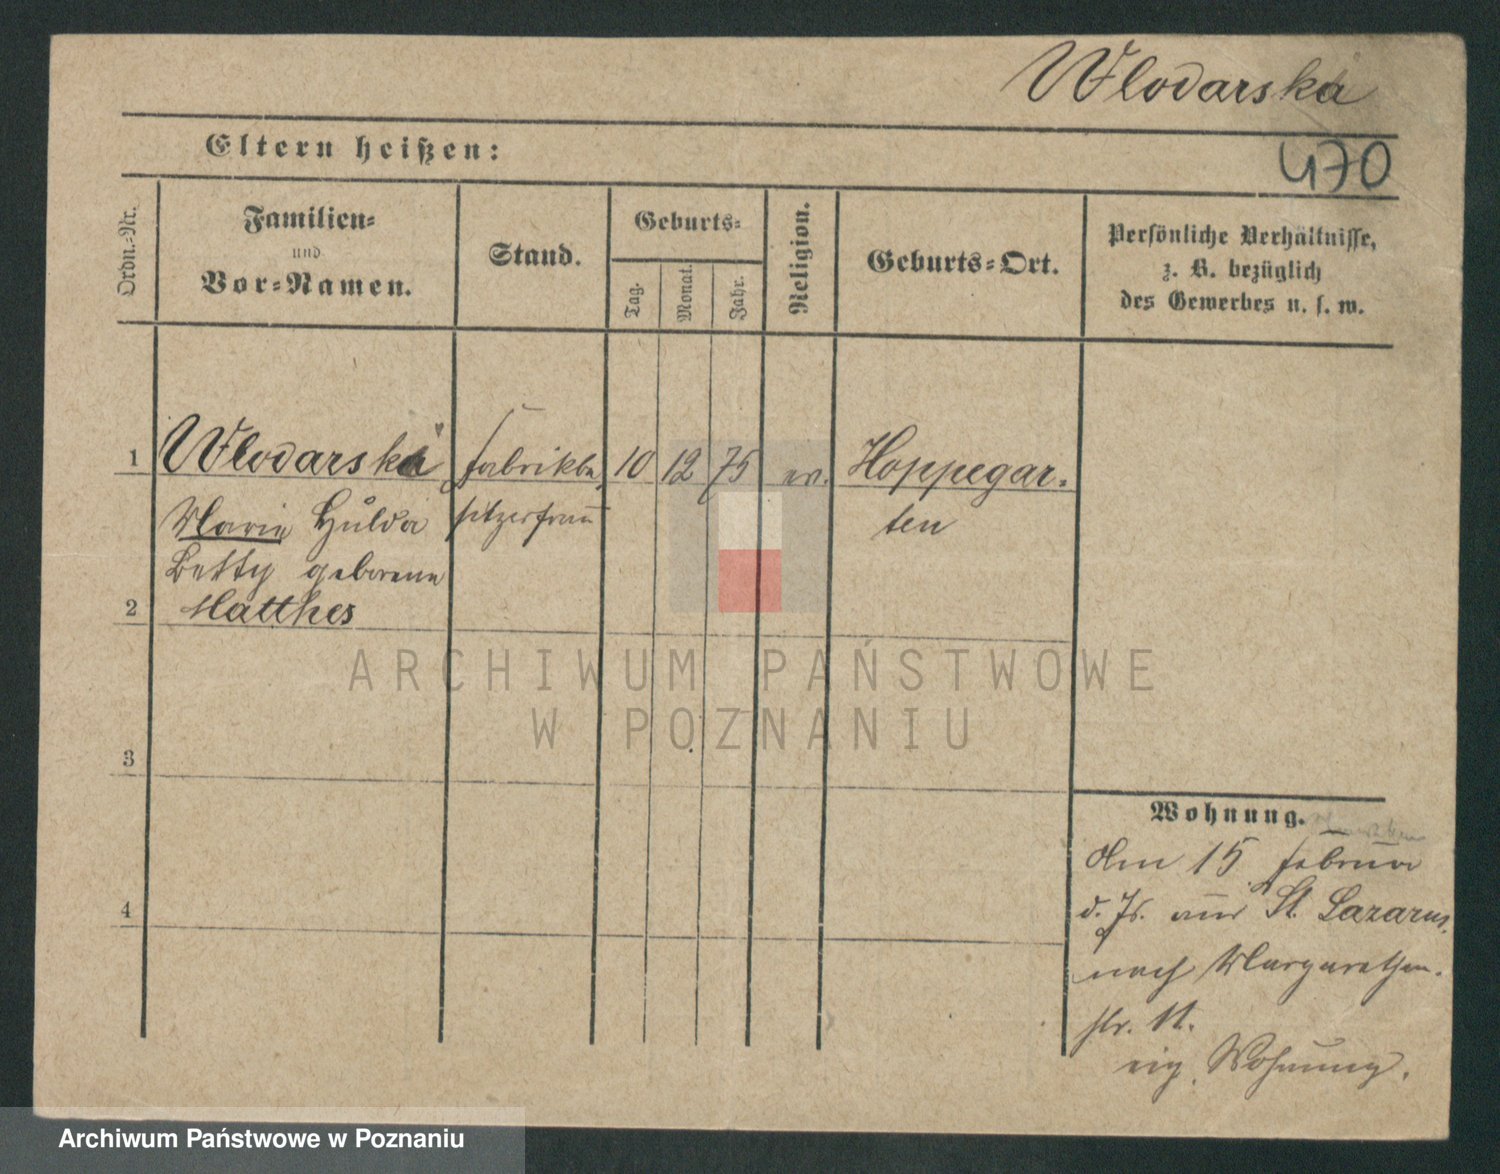 Wlodarska
Eltern heißen:
470
Ordn.-Nr.
Familien-
und
Vor-Namen.
Stand.
Geburts-
Tag.
Monat.
Jahr.
Religion.
Geburts-Ort.
Persönliche Verhältnisse,
z. B. bezüglich
des Gewerbes u. s. w.
1 Wlodarska Fabrikbe 10 12 75 ev. Hoppegar-
Marie Hulda sitzerfrau ten
Betty geborene
2 Matthes
ARCHIWUM PAŃSTWOWE
W POZNANIU
3
Wohnung.
Am 15 Februar
d. Js. aus St. Lazarus,
4
nach Margarethen-
str. 11.
eig. Wohnung.
Archiwum Państwowe w Poznaniu